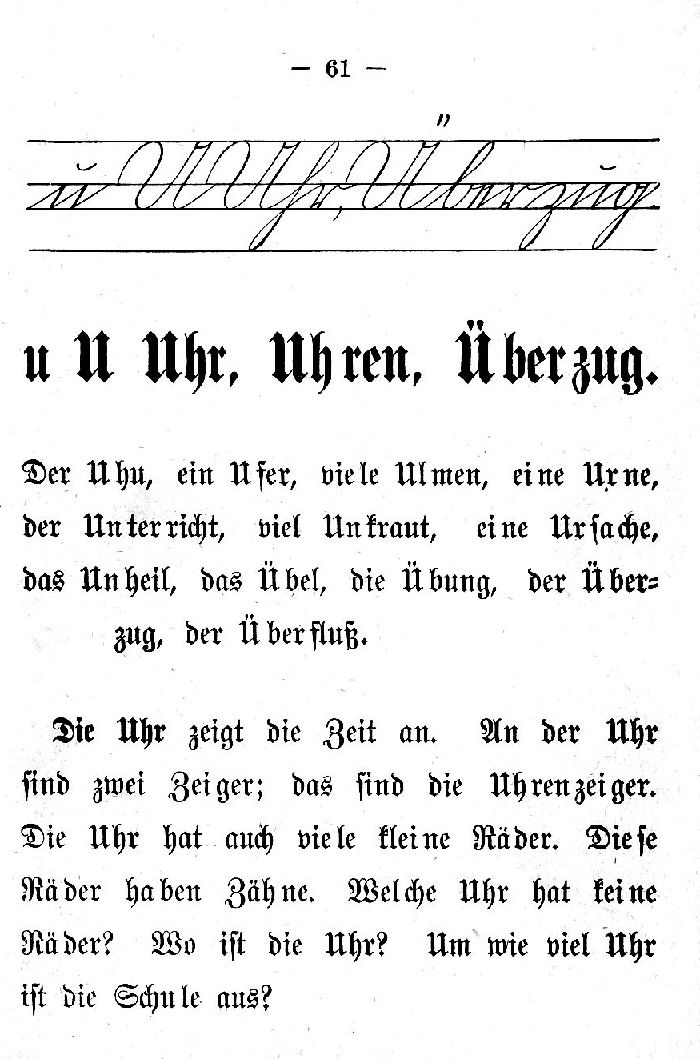 — 61 —
u U Uhr, Überzug
u U Uhr, Uhren, Überzug.
Der Uhu, ein Ufer, viele Ulmen, eine Urne,
der Unterricht, viel Unkraut, eine Ursache,
das Unheil, das Übel, die Übung, der Über-
zug, der Überfluß.
Die Uhr zeigt die Zeit an. An der Uhr
sind zwei Zeiger; das sind die Uhrenzeiger.
Die Uhr hat auch viele kleine Räder. Diese
Räder haben Zähne. Welche Uhr hat keine
Räder? Wo ist die Uhr? Um wie viel Uhr
ist die Schule aus?